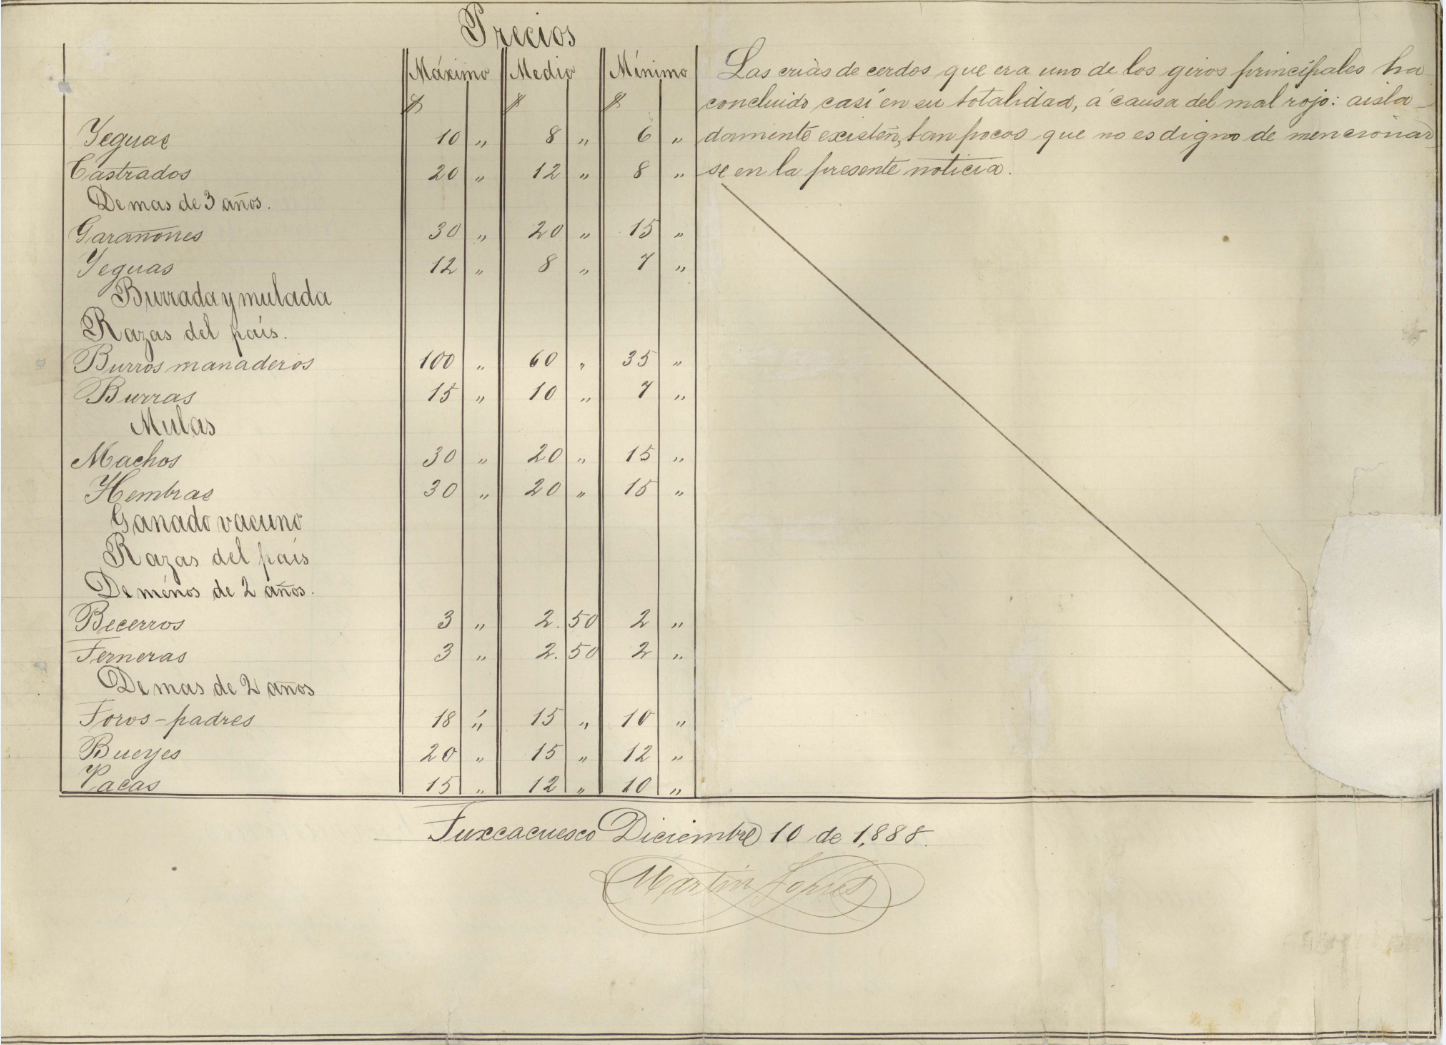 Precios
Máximo Medio Mínimo
$ $ $
Yeguas 10 „ 8 „ 6 „
Castrados 20 „ 12 „ 8 „
De mas de 3 años.
Garañones 30 „ 20 „ 15 „
Yeguas 12 „ 8 „ 7 „
Burrada y mulada
Razas del país.
Burros manaderos 100 „ 60 „ 35 „
Burras 15 „ 10 „ 7 „
Mulas
Machos 30 „ 20 „ 15 „
Hembras 30 „ 20 „ 15 „
Ganado vacuno
Razas del país
De ménos de 2 años.
Becerros 3 „ 2. 50 2 „
Terneras 3 „ 2. 50 2 „
De mas de 2 años
Toros-padres 18 „ 15 „ 10 „
Bueyes 20 „ 15 „ 12 „
Vacas 15 „ 12 „ 10 „
Las crias de cerdos que era uno de los giros principales ha
concluido casi en su totalidad, á causa del mal rojo: aisla-
damente existen, tan pocos que no es digno de mencionar
se en la presente noticia.
Tuxcacuesco Diciembre 10 de 1,888.
Martin Torres